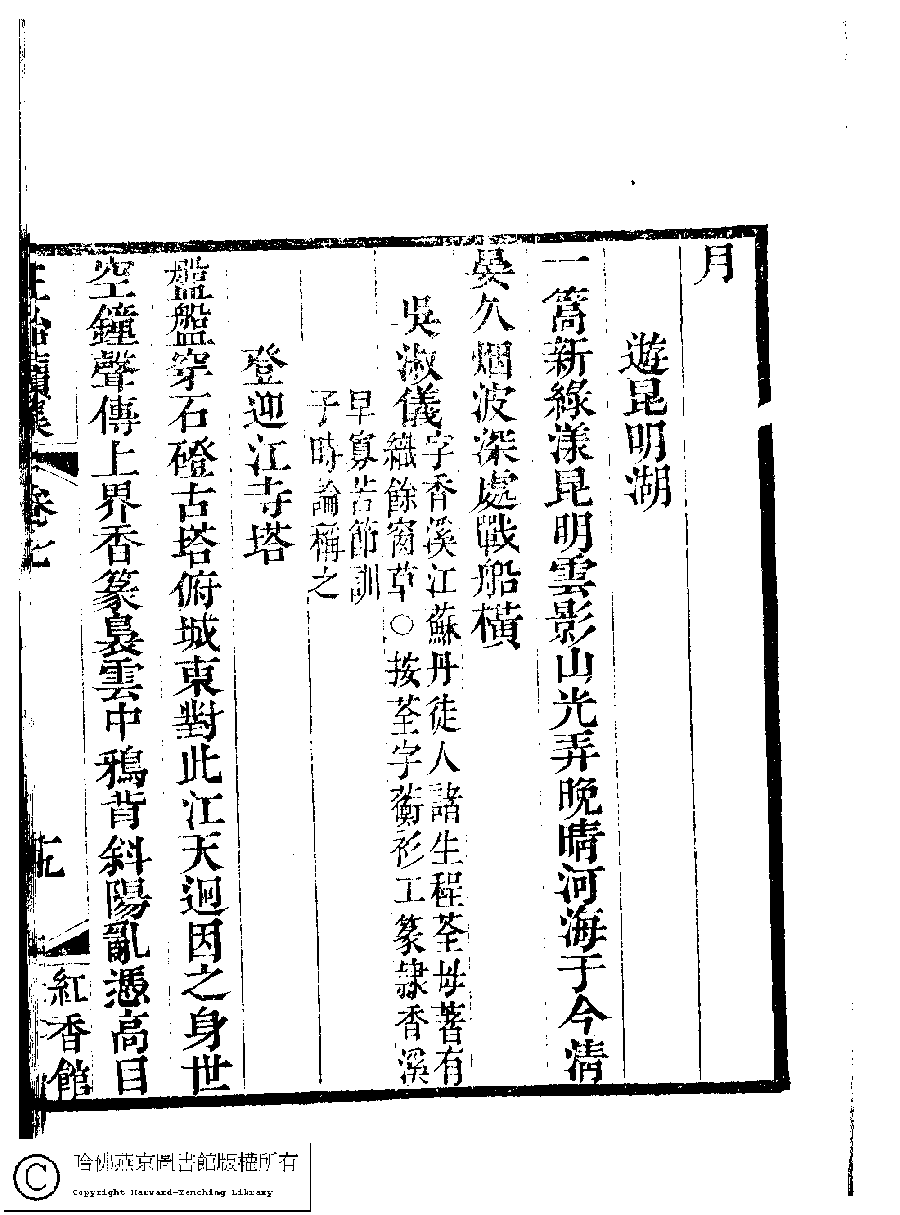 月
遊昆明湖
一篙新綠漾昆明雲影山光弄晚晴河海于今清
晏久烟波深處戰船橫
吳淑儀
字香溪江蘇丹徒人諸生程荃母著有
織餘窗草○按荃字蘅衫工篆隸香溪
早寡苦節訓
子時論稱之
登迎江寺塔
盤盤穿石磴古塔俯城東對此江天迥因之身世
空鐘聲傳上界香篆裊雲中鴉背斜陽亂憑高目
卷七
紅香館
哈佛燕京圖書館版權所有
Copyright Harvard-Yenching Library